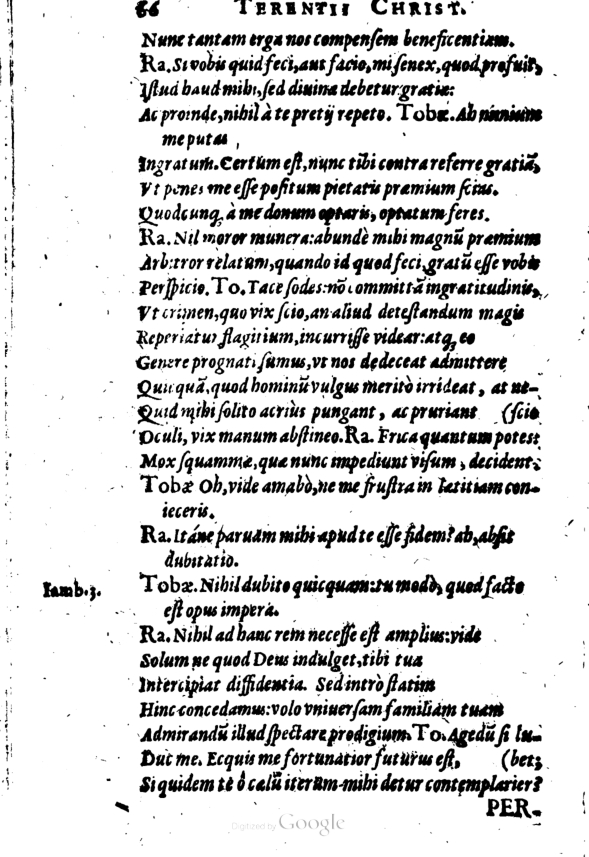 66 TERENTII CHRIST.
Nunc tantam erga nos compensem beneficentiam.
Ra. Si vobis quid feci, aut facio, mi senex, quod profuit,
Istud haud mihi, sed divinæ debetur gratiæ:
Ac proinde, nihil à te pretij repeto. Tobæ. Ah nimium
me putas,
Ingratum. Certum est, nunc tibi contra referre gratiā,
Vt penes me esse positum pietatis præmium scias.
Quodcunq; à me donum optaris, optatum feres.
Ra. Nil moror munera: abundè mihi magnū præmium
Arbitror relatum, quando id quod feci, gratū esse vobis
Perspicio. To. Tace sodes: nō committā ingratitudinis,
Vt crimen, quo vix scio, an aliud detestandum magis
Reperiatur flagitium, incurrisse videar: atq; eo
Genere prognati sumus, vt nos dedeceat admittere
Quicquā, quod hominū vulgus meritò irrideat, at ne-
Quid mihi solito acriùs pungant, ac pruriant (scio
Oculi, vix manum abstineo. Ra. Frica quantum potest
Mox squammæ, quæ nunc impediunt visum, decident.
Tobæ Oh, vide amabò, ne me frustra in lætitiam con-
ieceris.
Ra. Itáne paruam mihi apud te esse fidem? ah, absit
dubitatio.
Iamb. 3. Tobæ. Nihil dubito quicquam: tu modò, quod facto
est opus impera.
Ra. Nihil ad hanc rem necesse est amplius: vide
Solum ne quod Deus indulget, tibi tua
Intercipiat diffidentia. Sed intrò statim
Hinc concedamus: volo vniuersam familiam tuam
Admirandū illud spectare prodigium. To. Agedū si lu-
Duc me. Ecquis me fortunatior futurus est, (bet;
Si quidem te ô cælū iterùm mihi detur contemplarier?
PER-
Digitized by Google